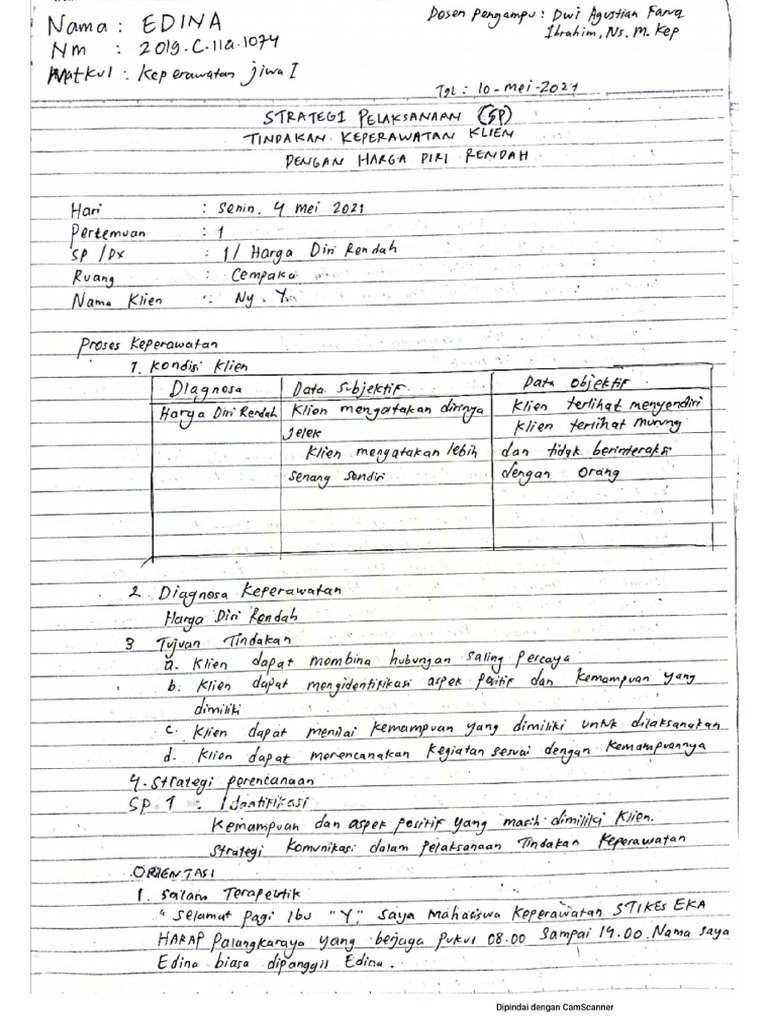 Nama : EDINA
Dosen Pengampu : Dwi Agustian Faruq
Ibrahim, Ns. M. Kep
Nm : 2019.C.11a.1074
Matkul : Keperawatan jiwa I
Tgl : 10-mei-2021
STRATEGI PELAKSANAAN (SP)
TINDAKAN KEPERAWATAN KLIEN
DENGAN HARGA DIRI RENDAH
Hari : Senin, 4 mei 2021
Pertemuan : 1
SP /Dx : 1/ Harga Diri Rendah
Ruang : Cempaka
Nama Klien : Ny. Y.
Proses Keperawatan
1. Kondisi Klien
Diagnosa Data Subjektif Data Objektif
Harga Diri Rendah Klien mengatakan dirinya Klien terlihat menyendiri
jelek Klien terlihat murung
Klien mengatakan lebih dan tidak berinteraksi
senang sendiri dengan orang
2 Diagnosa Keperawatan
Harga Diri Rendah
3 Tujuan Tindakan
a. Klien dapat membina hubungan saling percaya
b. Klien dapat mengidentifikasi aspek positif dan kemampuan yang
dimiliki
c. Klien dapat menilai kemampuan yang dimiliki untuk dilaksanakan
d. Klien dapat merencanakan kegiatan sesuai dengan kemampuannya
4. Strategi perencanaan
SP 1 : Identifikasi
Kemampuan dan aspek positif yang masih dimiliki klien.
Strategi komunikasi dalam pelaksanaan Tindakan keperawatan
ORIENTASI
1. Salam Terapeutik
"Selamat pagi Ibu "Y", saya Mahasiswa Keperawatan STIKES EKA
HARAP Palangkaraya yang berjaga pukul 08.00 sampai 14.00. Nama saya
Edina biasa dipanggil Edina.
Dipindai dengan CamScanner